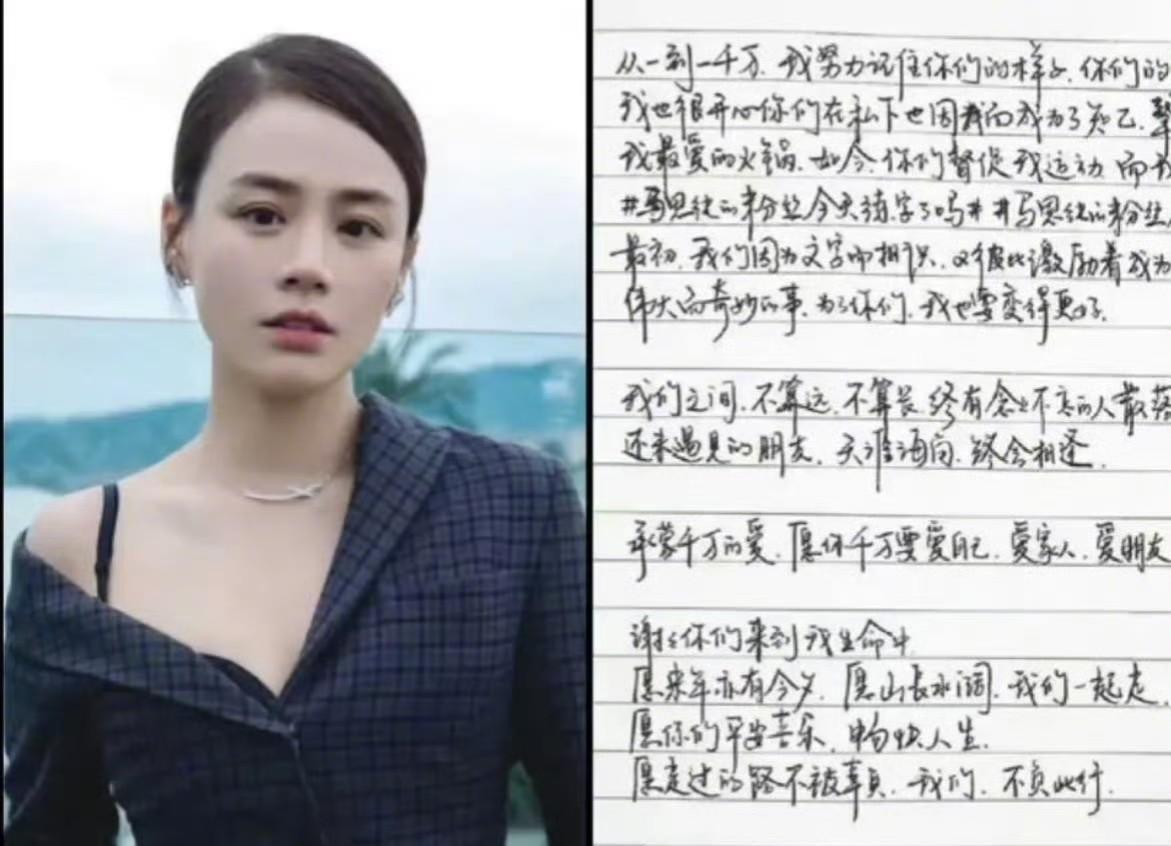 从一到一千万，我努力记住你们的样子，你们的
我也很开心你们在私下也因我而成为了知己，
我最爱的火锅，如今，你们督促我运动，而我
#马思纯的粉丝今天练字了吗# #马思纯的粉丝
最初，我们因为文字而相识，又彼此激励着成为
伟大而奇妙的事，为了你们，我也要变得更好。
我们之间，不算远，不算长，终有念念不忘的人散落
还未遇见的朋友，天涯海角，终会相逢。
承蒙千万的爱，愿你千万要爱自己，爱家人，爱朋友
谢谢你们来到我生命中
愿来年亦有今夕，愿山长水阔，我们一起走，
愿你们平安喜乐，畅快人生。
愿走过的路不被辜负，我们，不负此行。